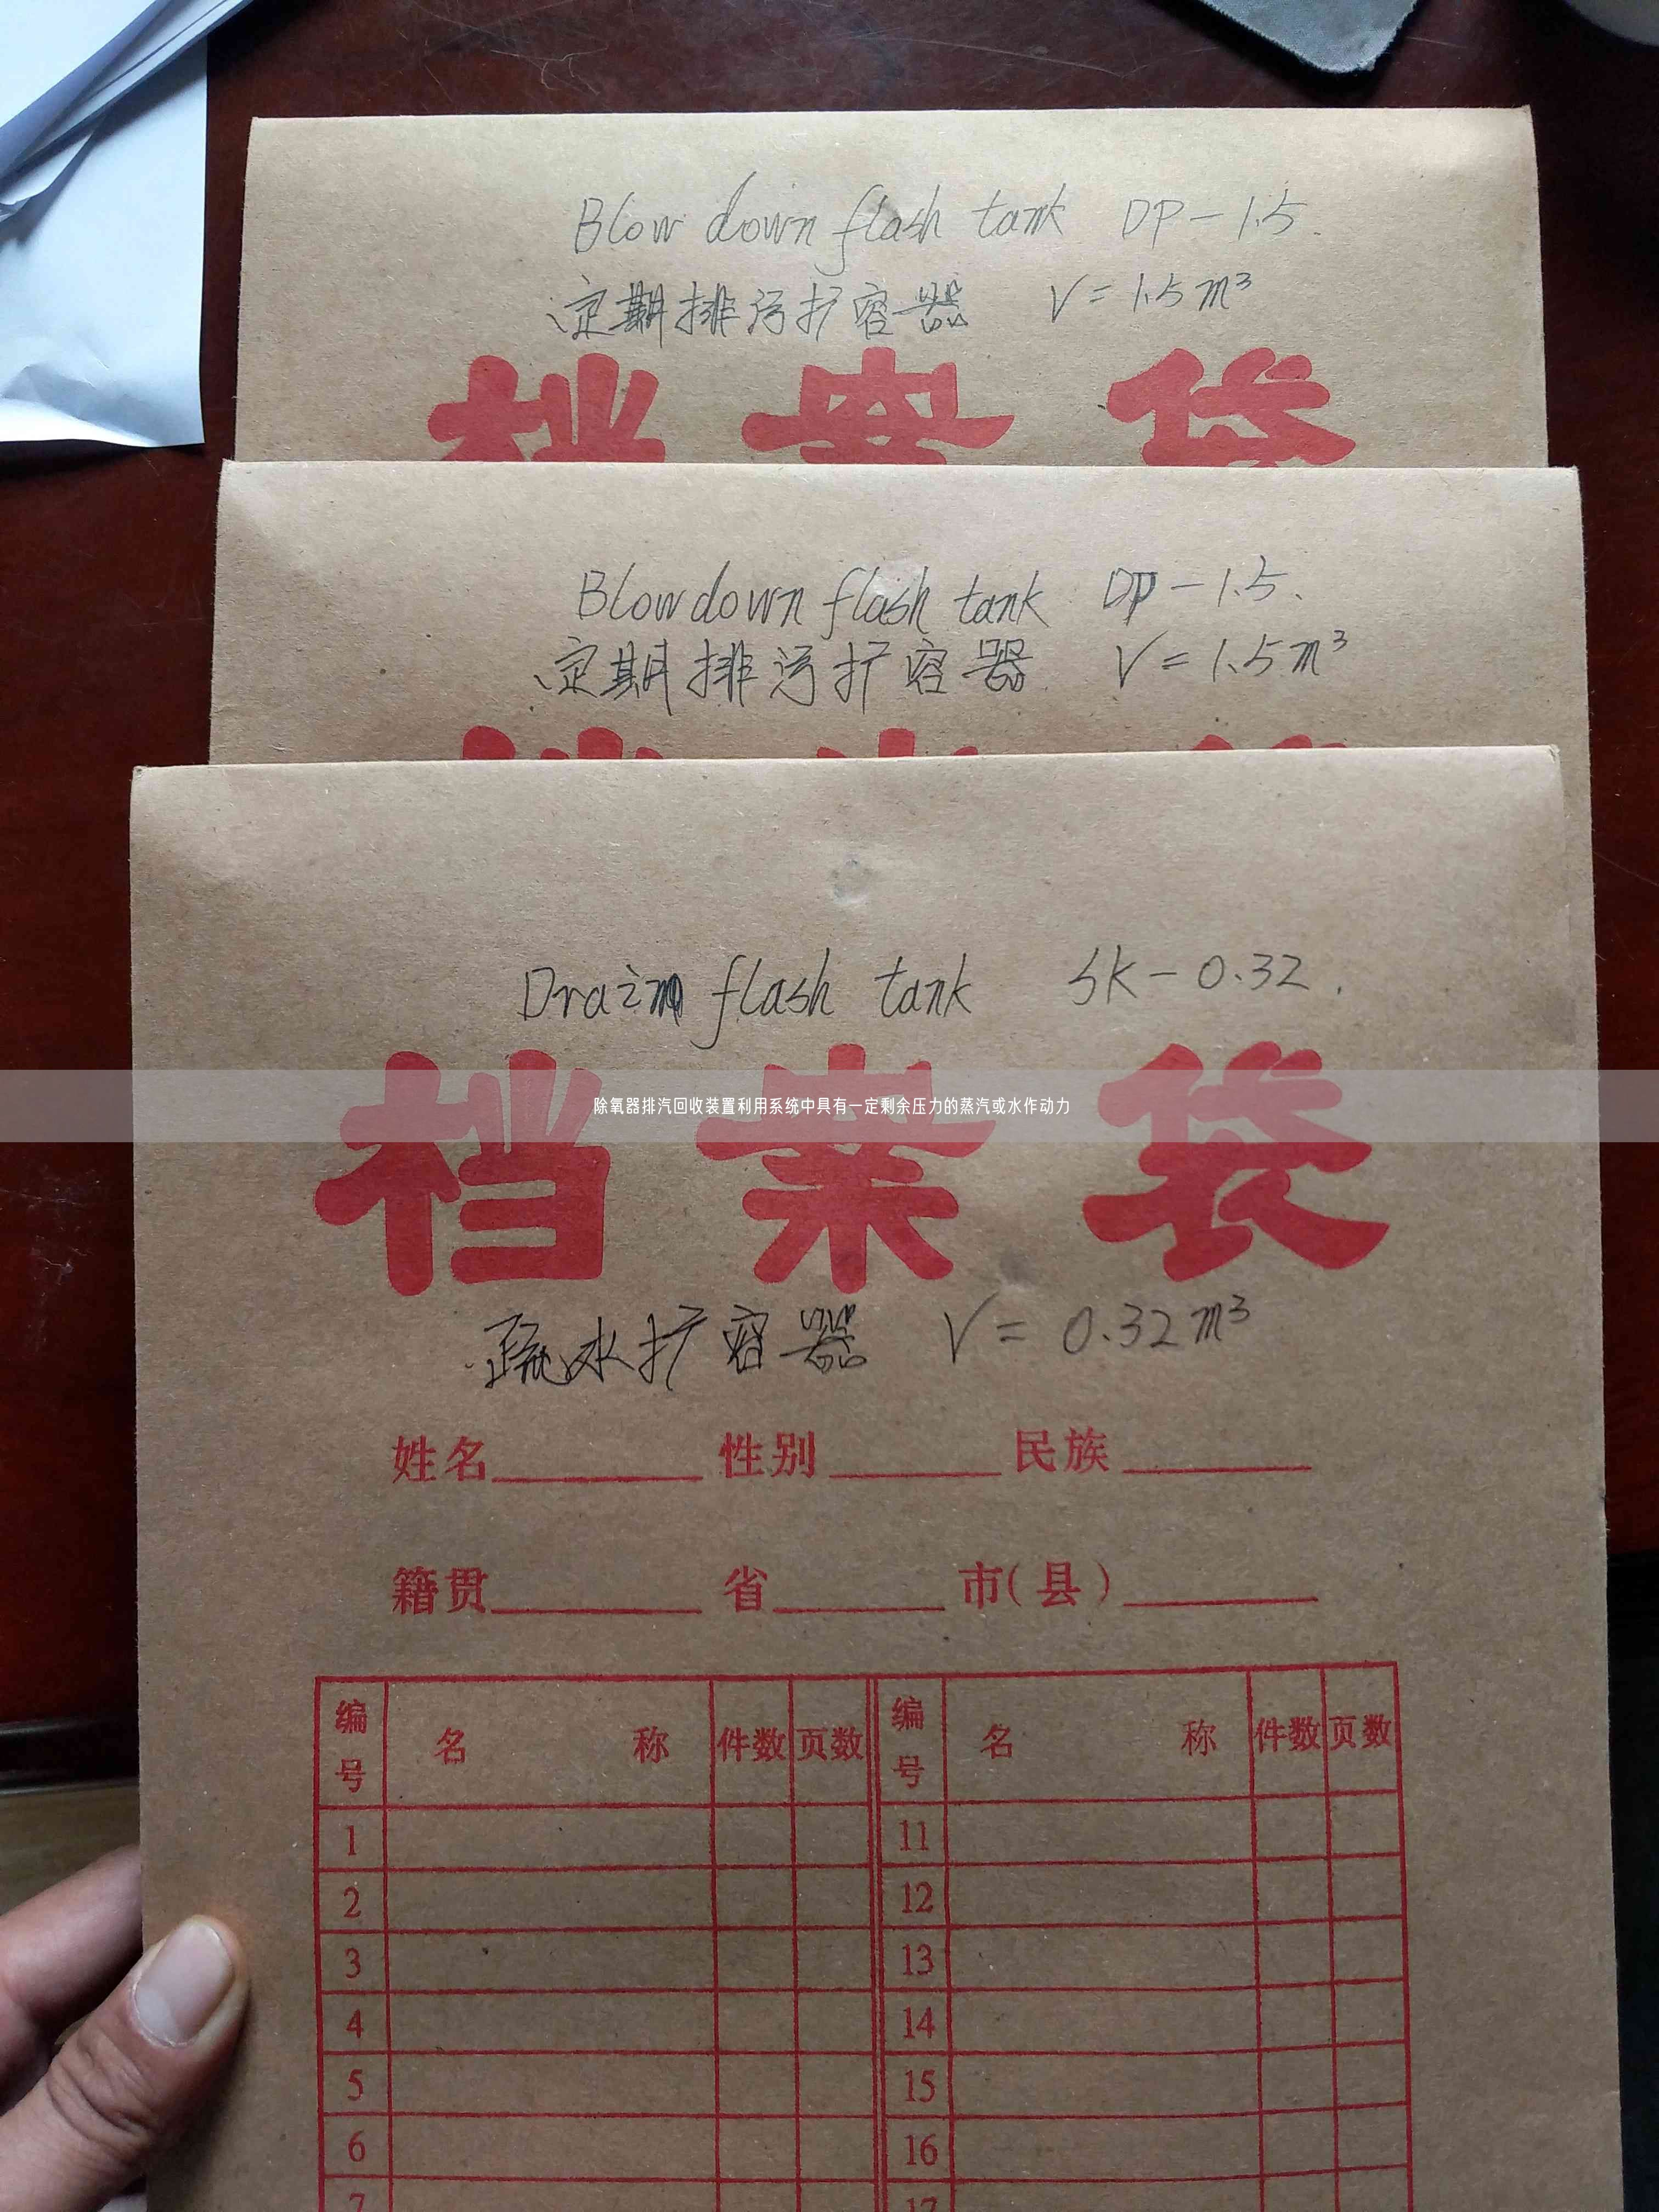 Blow down flash tank DP-1.5.
定期排污扩容器 V=1.5m³
档案袋
Blow down flash tank DP-1.5.
定期排污扩容器 V=1.5m³
Drain flash tank SK-0.32.
除氧器排汽回收装置利用系统中具有一定剩余压力的蒸汽或水作动力
档案袋
疏水扩容器 V=0.32m³
姓名 性别 民族
籍贯 省 市(县)
编号 名称 件数 页数 编号 名称 件数 页数
1 11
2 12
3 13
4 14
5 15
6 16
7 17